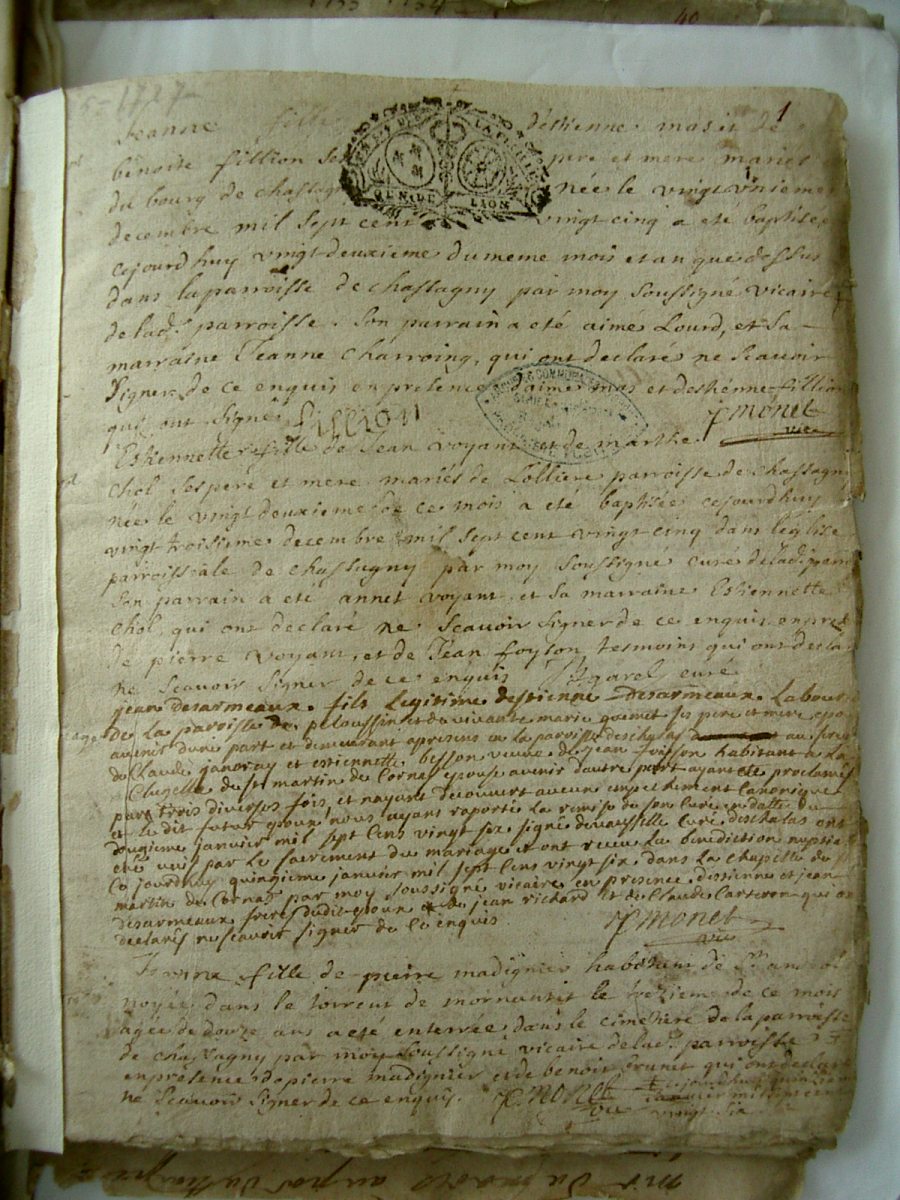 1
Jeanne fille d'estienne mas et de
benoite fillion ses pere et mere mariés
du bourg de chassagny née le vingt unieme
decembre mil sept cent vingt cinq a eté baptisée
cejourdhuy vingt deuxieme du meme mois et an que dessus
dans la parroisse de chassagny par moy soussigné vicaire
de lad. parroisse. son parrain a eté aimé Lourd, et sa
marraine Jeanne Charroing, qui ont declaré ne scavoir
signer de ce enquis en presence d'aimé mas et destienne fillion
qui ont signé fillion JPmonet
vic
Estiennette fille de Jean voyant et de marthe
chol ses pere et mere mariés de Lolliere parroisse de chassagny
née le vingt deuxieme de ce mois a eté baptisée cejourdhuy
vingt troisieme decembre mil sept cent vingt cinq dans leglise
parroissiale de chassagny par moy soussigné curé de lad. parr
son parrain a eté annet voyant, et sa marraine Estiennette
chol, qui ont declaré ne scavoir signer de ce enquis en pres
de pierre voyant, et de Jean foylon tesmoins qui ont decla
ne scavoir signer de ce enquis curé
jean desarmeaux fils legitime destienne desarmeaux Labour
de La paroisse de peloussin et de vivante marie goumet ses pere et mere epo
avenir dune part et demeurant apresens en la paroisse deschalas au
de Claude janoray et estiennette besson veuve de jean foison habitant a La
Clugelle de st martin de Cornas epouse avenir dautre part ayant ete proclamés
par trois diverses fois, et nayant decouvert aucun empechement Canonique
et le dit futur epoux nous ayant raporté La remise de son Curé en datte du
douzieme janvier mil sept Cens vingt six signé Curé deschalas ont
eté unis par le sacrement du mariage et ont receu La benediction nuptia
Ce jourdhuy quinzieme janvier mil sept Cens vingt six dans La chapelle de st
martin de Cornas par moy soussigné vicaire en presence destienne et jean
desarmeaux freres dudit epoux et de jean richard et de Claude Carteron qui on
declarés ne scavoir signer de Ce enquis JPmonet
vic
fille de pierre madignier habitant de St andeol
noyée dans le torrent de mornantet le treziem de ce mois
agée de douze ans a eté enterrée dans le cimetiere de la parroisse
de chassagny par moy soussigné vicaire de lad. parroisse +
en présence de pierre madignier et de benoit brunet qui ont declaré
ne scavoir signer de ce enquis. JPmonet + cejourdhuy quinzieme
vic janvier mil sept cent
vingt six